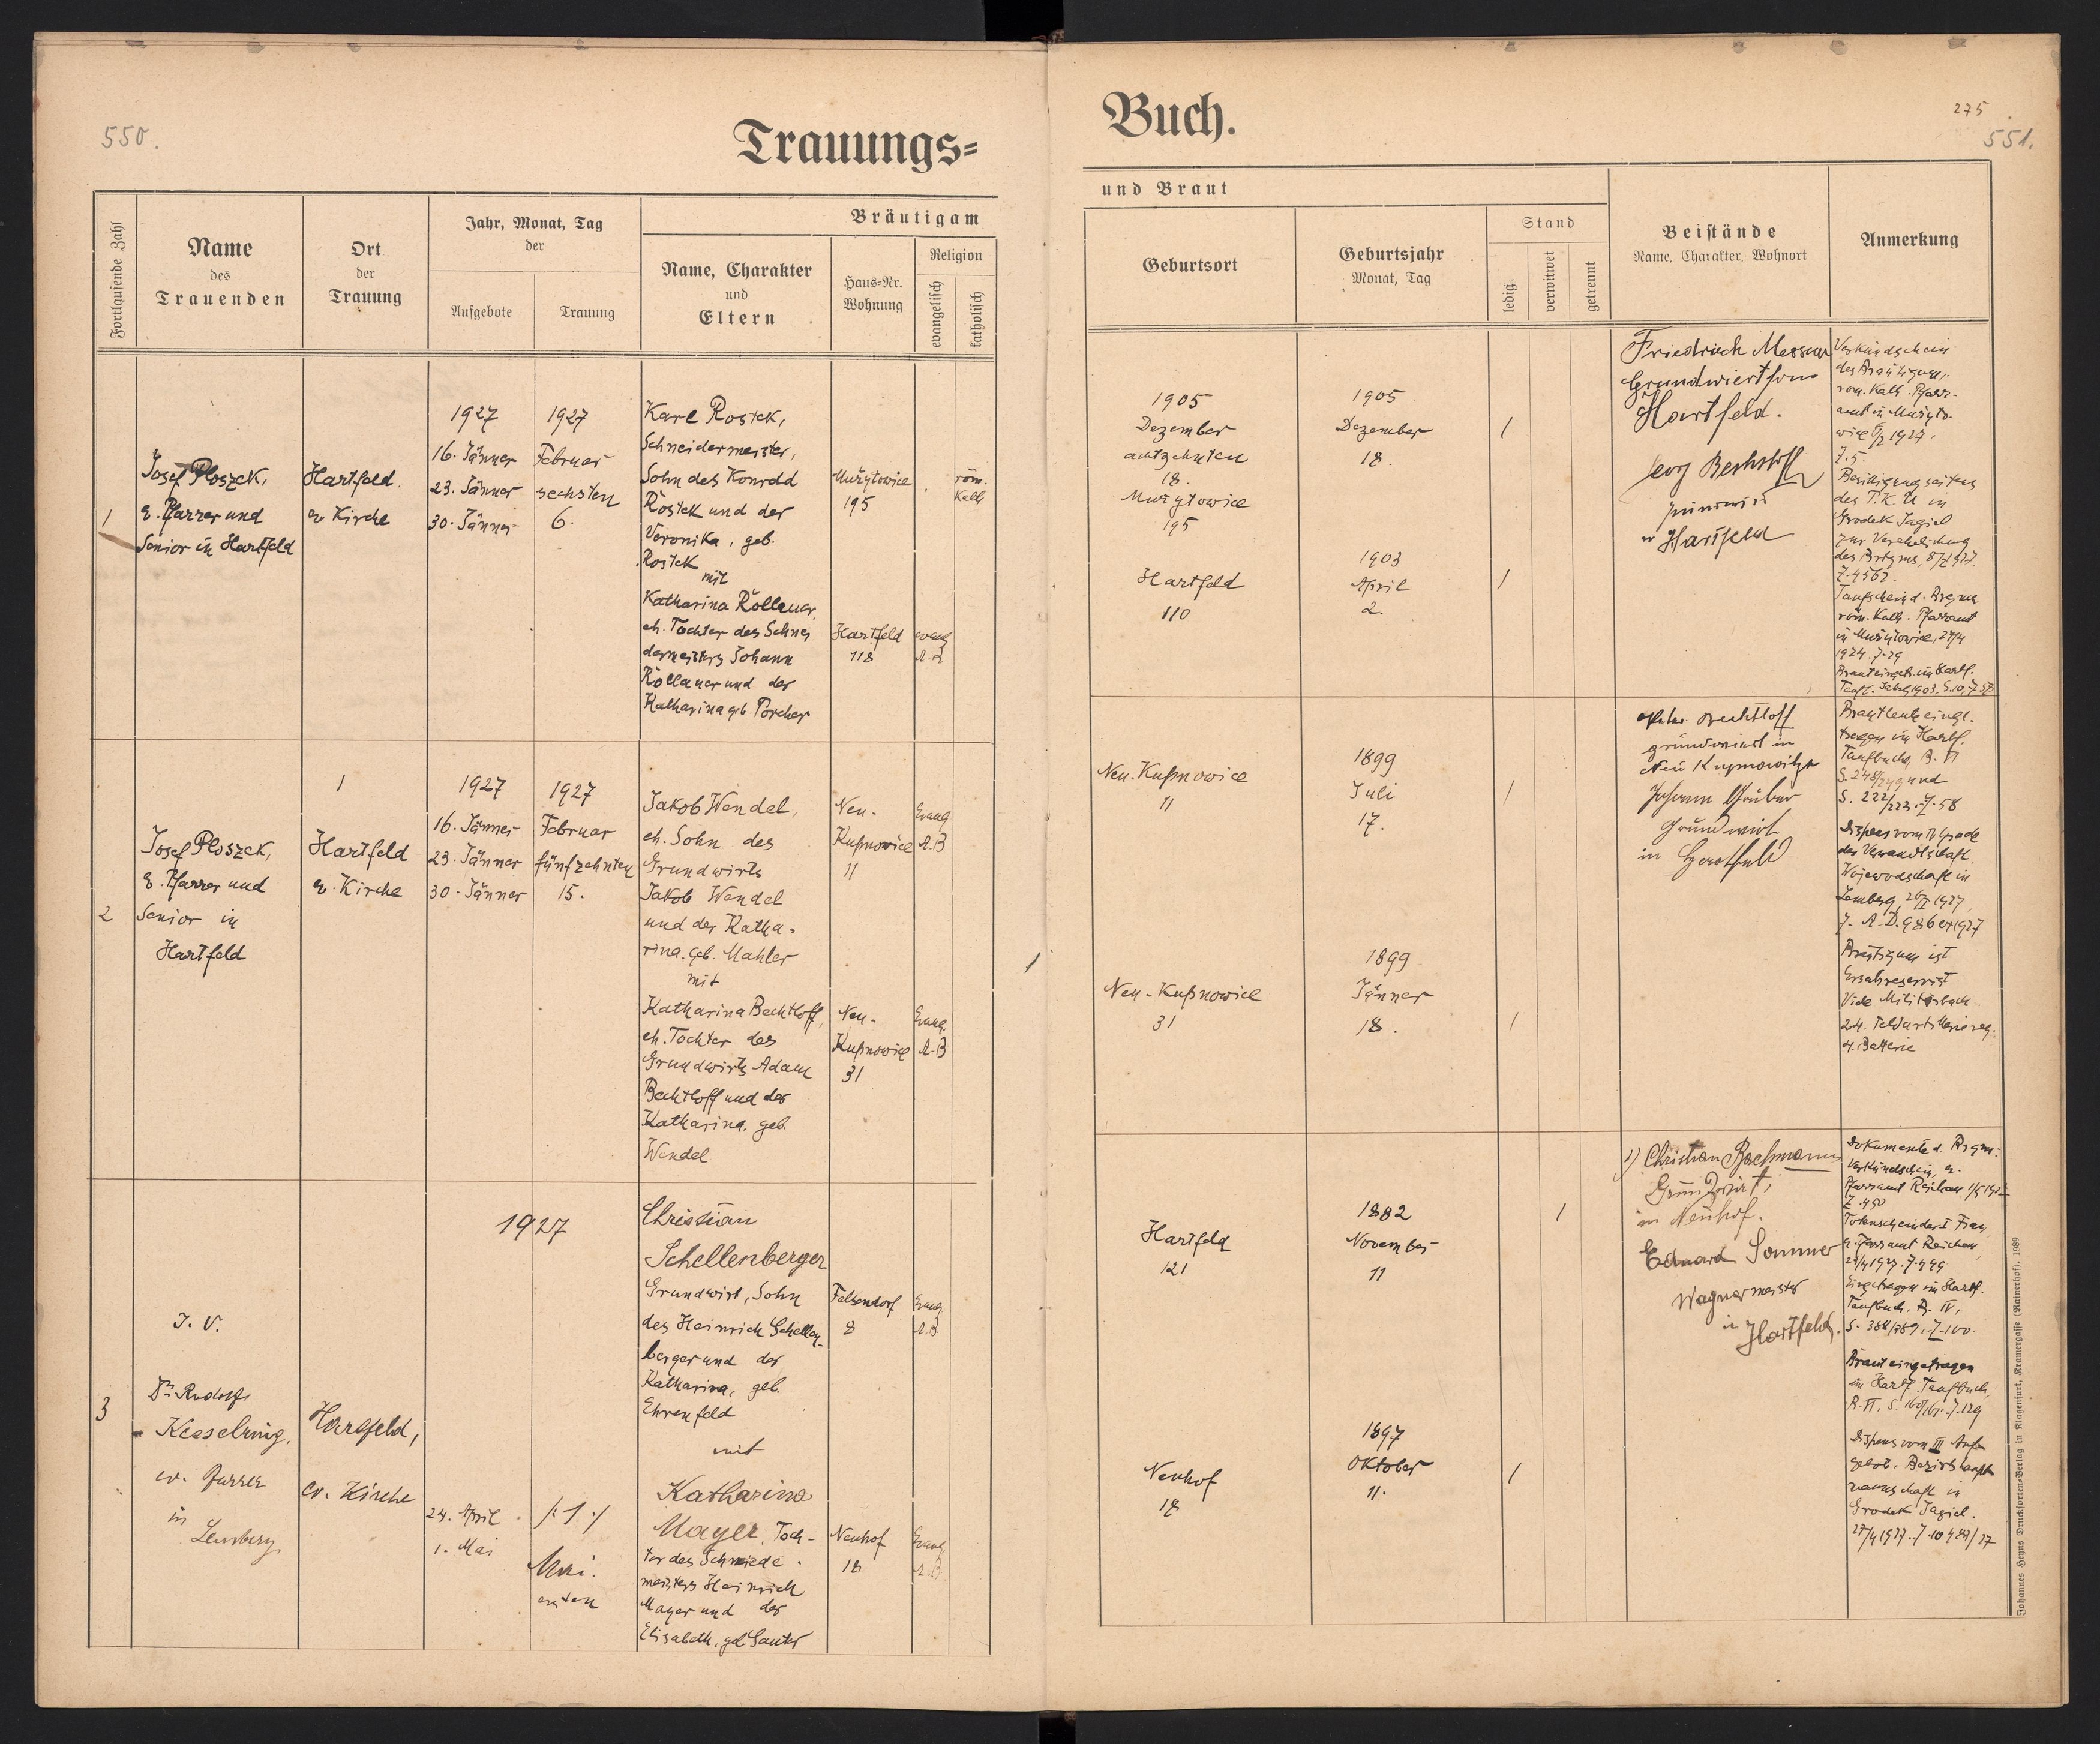 550.
Trauungs=
Fortlaufende Zahl
Name
des
Trauenden
Ort
der
Trauung
Jahr, Monat, Tag
der
Aufgebote
Trauung
Bräutigam
Name, Charakter
und
Eltern
Haus=Nr.
Wohnung
Religion
evangelisch
katholisch
1
Josef Ploszek,
e. Pfarrer und
Senior in Hartfeld
Hartfeld
ev Kirche
1927
16. Jänner
23. Jänner
30. Jänner
1927
Februar
sechsten
6.
Karl Rosiek,
Schneidermeister,
Sohn des Konrad
Rosiek und der
Veronika, geb.
Rosiek
mit
Katharina Rollauer
eh. Tochter des Schnei
dermeisters Johann
Rollauer und der
Katharina geb. Porcher
Mużytowice
195
röm.
Kath
Hartfeld
118
evang
A.B
2
Josef Ploszek,
e. Pfarrer und
Senior in
Hartfeld
1
Hartfeld
ev. Kirche
1927
16. Jänner
23. Jänner
30. Jänner
1927
Februar
fünfzehnten
15.
Jakob Wendel,
eh. Sohn des
Grundwirts
Jakob Wendel
und der Katha-
rina. geb. Mahler
mit
Katharina Bechtloff,
eh. Tochter des
Grundwirts Adam
Bechtloff und der
Katharina. geb.
Wendel
Neu-
Kupnowice
11
Evang
A.B
Neu-
Kupnowice
31
Evang.
A.B
3
I. V.
Dr. Rudolf
Kesselring,
ev. Pfarrer
in
Lemberg
Hartfeld,
ev. Kirche
1927
24. April
1. Mai
/: 1 :/
Mai.
ersten
Christian
Schellenberger
Grundwirt, Sohn
des Heinrich Schellen-
berger und der
Katharina, geb.
Ehrenfeld
mit
Katharina
Mayer, Toch-
ter des Schmiede-
meisters Heinrich
Mayer und der
Elisabeth, geb Sauter
Felsendorf
8
Evang
A.B
Neuhof
18
Evang
A.B.
Buch.
275
551.
und Braut
Geburtsort
Geburtsjahr
Monat, Tag
Stand
ledig.
verwitwet
getrennt
Beistände
Name, Charakter, Wohnort
Anmerkung
1905
Dezember
achtzehnten
18.
Mużytowice
195
1905
Dezember
18.
1
Hartfeld
110
1903
April
2.
1
Friedrich
Hartfeld.
Georg Bechtloff
in Hartfeld
Verkündschein
des Bräutigams,
röm. Kath. Pfarr-
amt in Mużyto-
wice 6/2 1927.
Z. 5.
Bewilligung seitens
des P.K.U in
Grodek Jagiel
zur Verehelichung
Z. 4562.
Taufschein d. Brgms
röm. Kath. Pfarramt
in Mużytowice, 27/4
1924. Z. 29
Neu-Kupnowice
11
1899
Juli
17.
1
Neu-Kupnowice
31
1899
Jänner
18.
1
Bechtloff
grundwirt in
Johann Gruber
Grundwirt
in Hartfeld
Brautleute einge-
tragen im Hartf.
Taufbuch, B. VI
S. 248/249 und
S. 222/223. Z. 58
Dispens vom IV Grade
der Verwandtschaft
Wojewodschaft in
Lemberg, 26/I 1927,
Z. A. D. 986 ex 1927
Bräutigam ist
Ersatzreservist
Vide Militärbuch
4. Batterie
Hartfeld
121
1882
November
11
1
Neuhof
18
1897
Oktober
11.
1
1) Christian Bachmann
Grundwirt,
in Neuhof.
Eduard Sommer
Wagnermeister
in Hartfeld.
Dokumente d. Brgms:
Verkündschein, e.
Totenschein der I Frau,
e. Pfarramt Reichau
Eingetragen im Hartf.
Taufbuch, B. IV,
S. 388/389, Z. 100.
Braut eingetragen
im Hartf. Taufbuch,
B. VI, S. 160/161. Z. 129
Dispens vom III Auf-
gebot. Bezirkshaupt-
mannschaft in
Grodek Jagiel.
Johannes Heyns Drucksorten=Verlag in Klagenfurt, Kramergasse (Rainerhof). 1989